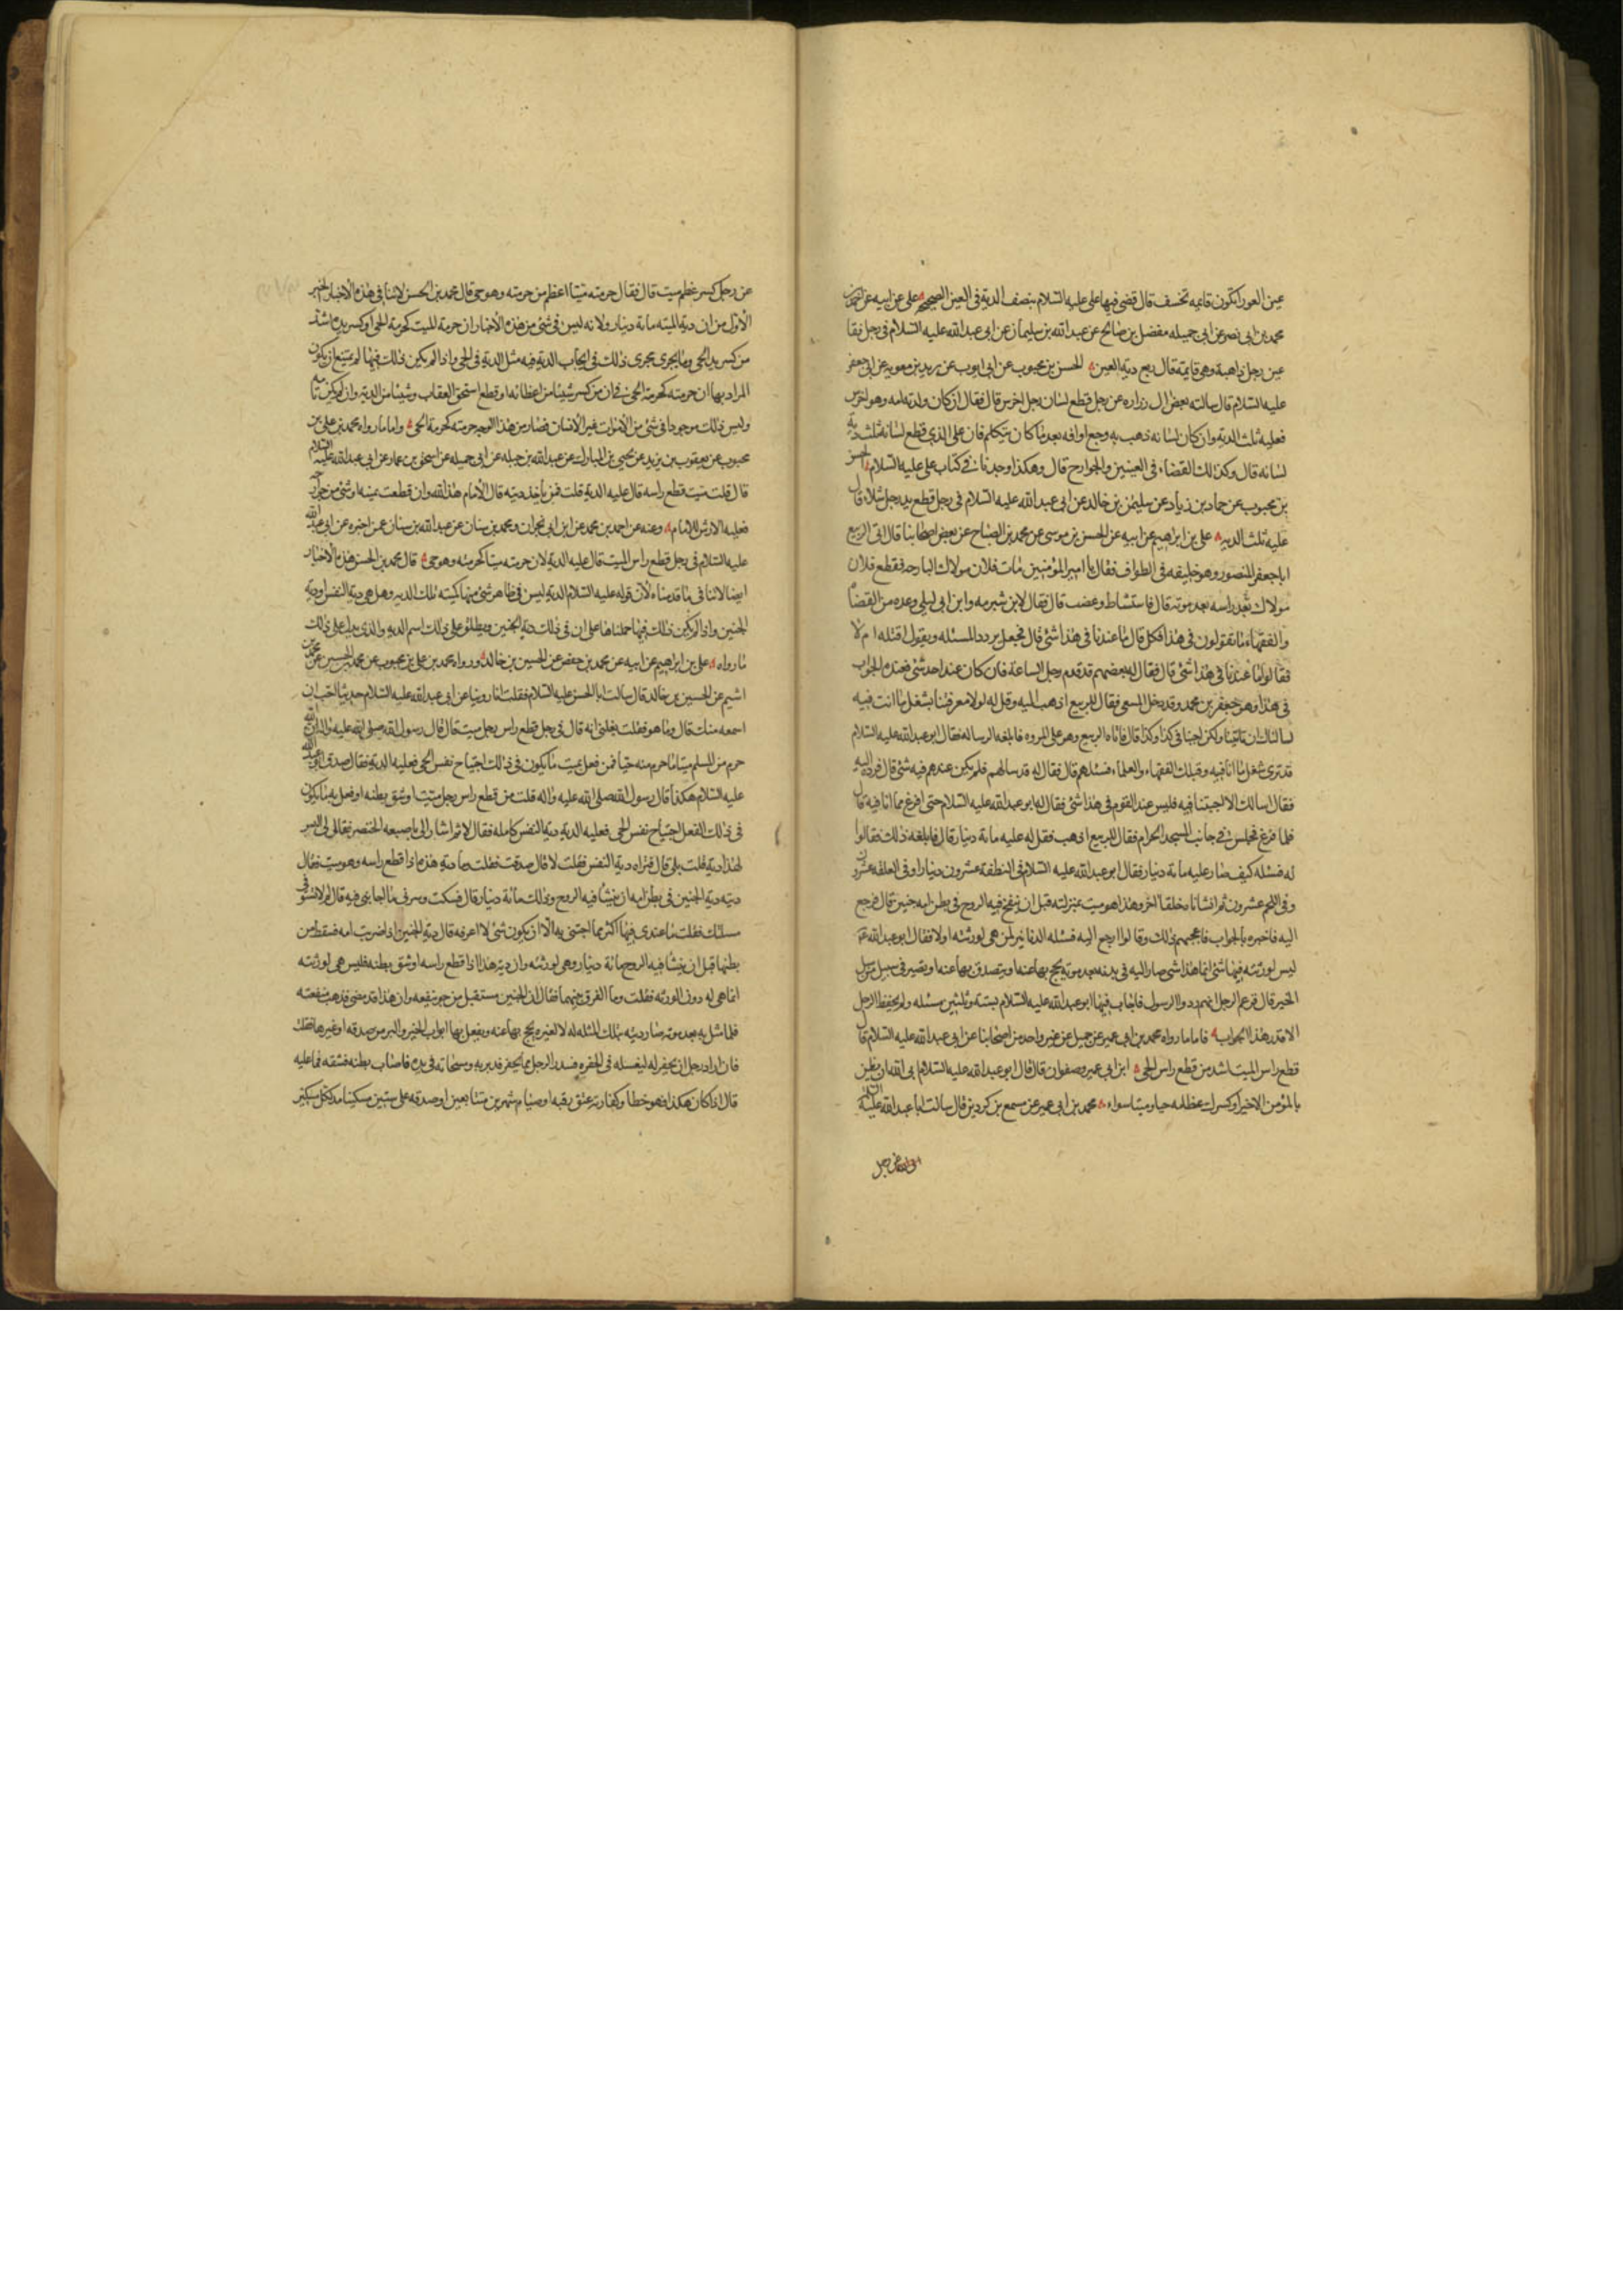 عين العورا تكون قايمه تخسف قال قضى فيها على عليه السلام بنصف الدية فى العين الصحيحه على عن ابيه عن
محمد بن ابى نصر عن ابى جميله مفضل بن صالح عن عبد الله بن سليمان عن ابى عبد الله عليه السلام فى رجل فقا
عين رجل ذاهبة وهى قايمة قال ربع دية العين الحسن بن محبوب عن ابى ايوب عن بريد بن معويه عن ابى جعفر
عليه السلام قال سالته بعض ال زراره عن رجل قطع لسان رجل اخرس قال فقال ان كان ولدته امه وهو اخرس
فعليه ثلث الدية وان كان لسانه ذهب به وجع او افه بعد ما كان يتكلم فان على الذى قطع لسانه ثلث دية
لسانه قال وكذلك القضاء فى العينين والجوارح قال وهكذا وجدناه فى كتاب على عليه السلام الحسن
بن محبوب عن حماد بن زياد عن سليمن بن خالد عن ابى عبد الله عليه السلام فى رجل قطع يد رجل شلاء قال
عليه ثلث الديه على بن ابراهيم عن ابيه عن الحسن بن موسى عن محمد بن الصباح عن بعض اصحابنا قال اتى الربيع
ابا جعفر المنصور وهو خليفه فى الطواف فقال يا امير المؤمنين مات فلان مولاك البارحه فقطع فلان
مولاك راسه بعد موته قال فاستشاط وغضب قال فقال لابن شبرمه وابن ابى ليلى وعده من القضاة
والفقهاء ما تقولون فى هذا فكل قال ما عندنا فى هذا شئ قال فجعل يردد المسئله ويقول اقتله ام لا
فقالوا ما عندنا فى هذا شئ قال فقال له بعضهم قد قدم رجل الساعة فان كان عند احد شئ فعنده الجواب
فى هذا وهو جعفر بن محمد وقد دخل المسعى فقال للربيع اذهب اليه وقل له لولا معرفتنا بشغل ما انت فيه
لسالناك ان تاتينا ولكن اجبنا فى كذا وكذا قال فاتاه الربيع وهو على المروه فابلغه الرساله فقال ابو عبد الله عليه السلام
قد ترى شغل ما انا فيه وقبلك الفقهاء والعلماء فسئلهم قال فقال له قد سالهم فلم يكن عندهم فيه شئ قال فرده اليه
فقال اسالك الا اجبتنا فيه فليس عند القوم فى هذا شئ فقال له ابو عبد الله عليه السلام حتى افرغ مما انا فيه قال
فلما فرغ فجلس فى جانب المسجد الحرام فقال للربيع اذهب فقل له عليه مائة دينار قال فابلغه ذلك فقالوا
له فسئله كيف صار عليه مائة دينار فقال ابو عبد الله عليه السلام فى النطفة عشرون دينارا وفى العلقه عشرون
وفى اللحم عشرون ثم انشاناه خلقا اخر وهذا هو ميت بمنزلته قبل ان ينفخ فيه الروح فى بطن امه جنين قال فرجع
اليه فاخبره بالجواب فاعجبهم ذلك وقالوا ارجع اليه فسئله الدنانير لمن هى لورثته او لا فقال ابو عبد الله
ليس لورثته فيها شئ انما هذا شئ صار اليه فى بدنه بعد موته يحج بها عنه او يتصدق بها عنه او يصير فى سبيل من سبل
الخير قال فزعم الرجل انهم ردوا الرسول فاجاب فيها ابو عبد الله عليه السلام بستة وثلثين مسئله ولم يحفظ الرجل
الا قدر هذا الجواب فاما ما رواه محمد بن ابى عمير عن جميل عن غير واحد من اصحابنا عن ابى عبد الله عليه السلام قال
قطع راس الميت اشد من قطع راس الحى ابن ابى عمير وصفوان قالا قال ابو عبد الله عليه السلام ابى الله ان يظن
بالمؤمن الا خيرا وكسرك عظامه حيا وميتا سواء محمد بن ابى عمير عن مسمع بن كردين قال سالت ابا عبد الله عليه السلام
عن رجل
عن رجل كسر عظم ميت قال فقال حرمته ميتا اعظم من حرمته وهو حى قال محمد بن الحسن لا ينافى هذه الاخبار الخبر
الاول من ان دية الميته مائة دينار ولانه ليس فى شئ من هذه الاخبار ان حرمة الميت كحرمة الحى او كسر يده اشد
من كسر يد الحى وما يجرى مجرى ذلك فى ايجاب الدية فيه مثل الدية فى الحى واذا لم يكن ذلك فيها لم يمتنع ان يكون
المراد بها ان حرمته كحرمة الحى فان من كسر شيئا من اعظائه او قطع استحق العقاب وشيئا من الدية وان لم يكن
وليس ذلك موجودا فى شئ من الاموات غير الانسان فصار من هذا الوجه حرمته كحرمة الحى واما ما رواه محمد بن على بن
محبوب عن يعقوب بن يزيد عن يحيى بن المبارك عن عبد الله بن جبله عن ابى جميله عن اسحق بن عمار عن ابى عبد الله عليه السلام
قال قلت ميت قطع راسه قال عليه الدية قلت فمن ياخذ ديته قال الامام هذا لله وان قطعت يمينه او شئ من جوارحه
فعليه الارش للامام وعنه عن احمد بن محمد عن ابن ابى نجران ومحمد بن سنان عن عبد الله بن سنان عمن اخبره عن ابى عبد الله
عليه السلام فى رجل قطع راس الميت قال عليه الدية لان حرمته ميتا كحرمته وهو حى قال محمد بن الحسن هذه الاخبار
ايضا لا تنافى ما قدمناه لان قوله عليه السلام الدية ليس فى ظاهر شئ منها كميته تلك الديه وهل هى دية النفس او دية
الجنين واذا لم يكن ذلك فيها حملناها على ان فى ذلك دية الجنين وينطلق على ذلك اسم الدية والذى يدل على ذلك
ما رواه على بن ابراهيم عن ابيه عن محمد بن حفص عن الحسين بن خالد ورواه محمد بن على بن محبوب عن محمد بن الحسين عن محمد بن
اشيم عن الحسين بن خالد قال سالت ابا الحسن عليه السلام فقلت انا روينا عن ابى عبد الله عليه السلام حديثا احب ان
اسمعه منك قال وما هو فقلت بلغنى انه قال فى رجل قطع راس رجل ميت قال قال رسول الله صلى الله عليه واله ان الله
حرم من المسلم ميتا ما حرم منه حيا فمن فعل بميت ما يكون فى ذلك اجتياح نفس الحى فعليه الدية فقال صدق ابو عبد الله
عليه السلام هكذا قال رسول الله صلى الله عليه واله قلت من قطع راس رجل ميت او شق بطنه او فعل به ما يكون
فى ذلك الفعل اجتياح نفس الحى فعليه الدية دية النفس كامله فقال لا ثم اشار الى باصبعه الخنصر فقال لى اليس
لهذا دية قلت بلى قال فتراه دية النفس فقلت لا قال صدقت فقلت وما دية هذه اذا قطع راسه وهو ميت فقال
ديته دية الجنين فى بطن امه ان ينشا فيه الروح وذلك مائة دينار قال فسكت وسرنى ما اجابنى فيه قال لم لا تستوفى
مسئلتك فقلت ما عندى فيها اكثر مما اجبتنى به الا ان يكون شئ لا اعرفه قال دية الجنين اذا ضربت امه فسقط من
بطنها قبل ان ينشا فيه الروح مائة دينار وهى لورثته وان دية هذا اذا قطع راسه او شق بطنه فليس هى لورثته
انما هى له دون الورثه فقلت وما الفرق بينهما فقال ان الجنين مستقبل مرجو نفعه وان هذا قد مضى فذهبت منفعته
فلما مثل به بعد موته صارت ديته بتلك المثله له لا لغيره يحج بها عنه ويفعل بها ابواب الخير والبر من صدقه او غيرها فقلت
فان اراد رجل ان يحفر له ليغسله فى الحفره فسدر الرجل مما يحفر فدير به ومسحاته فى يده فاصاب بطنه فشقه فما عليه
قال اذا كان هكذا فهو خطا وكفارته عتق رقبه او صيام شهرين متتابعين او صدقه على ستين مسكينا مد لكل مسكين